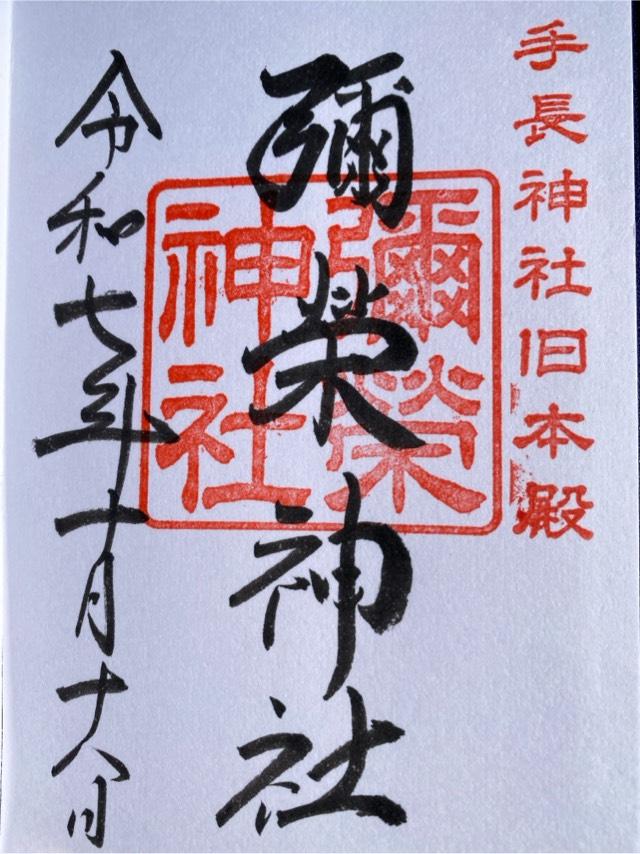 手長神社旧本殿
彌榮神社
彌榮
神社
令和七年十月十八日